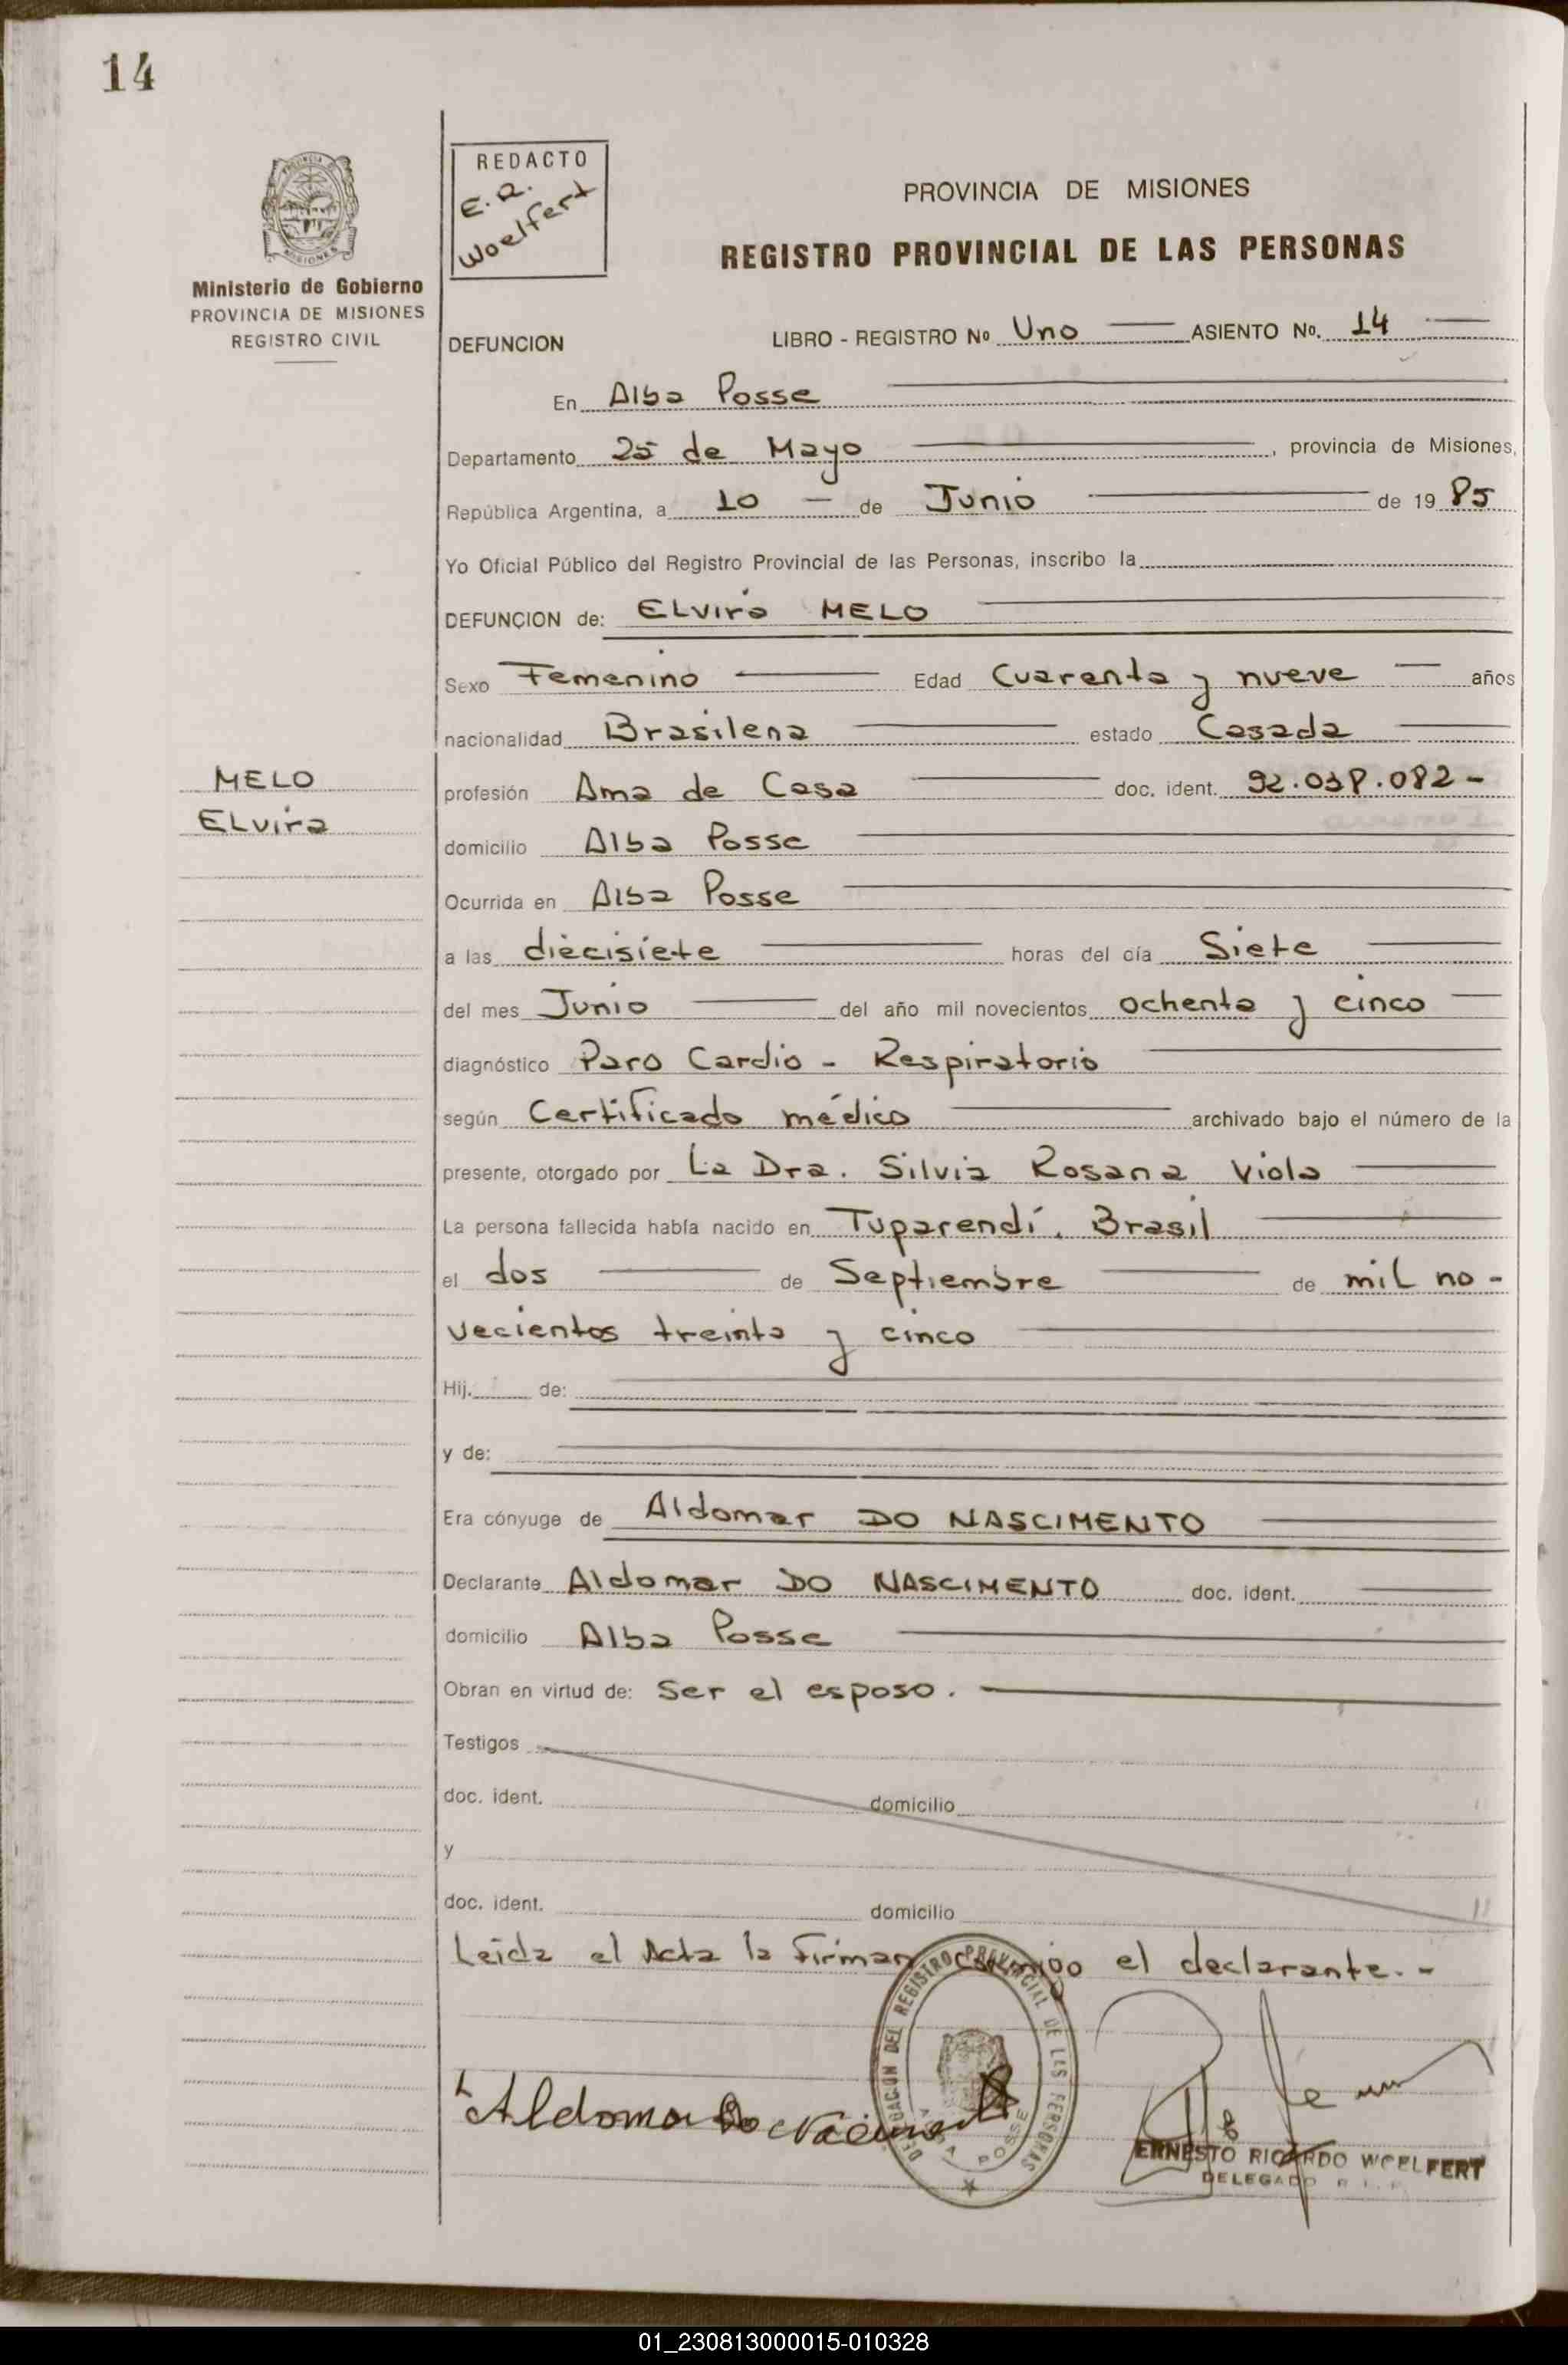 14
PROVINCIA
MISIONES
Ministerio de Gobierno
PROVINCIA DE MISIONES
REGISTRO CIVIL
REDACTO
E.R.
Woelfert
PROVINCIA DE MISIONES
REGISTRO PROVINCIAL DE LAS PERSONAS
DEFUNCION LIBRO - REGISTRO Nº Uno ASIENTO Nº. 14
En Alba Posse
Departamento 25 de Mayo, provincia de Misiones,
República Argentina, a 10 de Junio de 19 85
Yo Oficial Público del Registro Provincial de las Personas, inscribo la
DEFUNCION de: ELvira MELO
Sexo Femenino Edad Cuarenta y nueve años
nacionalidad Brasilena estado Casada
MELO
ELvira
profesión Ama de Casa doc. ident. 92.038.082-
domicilio Alba Posse
Ocurrida en Alba Posse
a las diecisiete horas del día Siete
del mes Junio del año mil novecientos ochenta y cinco
diagnóstico Paro Cardio - Respiratorio
según Certificado médico archivado bajo el número de la
presente, otorgado por La Dra. Silvia Rosana Viola
La persona fallecida había nacido en Tuparendí, Brasil
el dos de Septiembre de mil no-
vecientos treinta y cinco
Hij. de:
y de:
Era cónyuge de Aldomar DO NASCIMENTO
Declarante Aldomar DO NASCIMENTO doc. ident.
domicilio Alba Posse
Obran en virtud de: Ser el esposo.
Testigos
doc. ident. domicilio
y
doc. ident. domicilio
Leída el Acta la Firman conmigo el declarante.-
DELEGACION DEL REGISTRO PROVINCIAL DE LAS PERSONAS
ALBA POSSE
Aldomar Do
ERNESTO RICARDO WOELFERT
DELEGADO
01_230813000015-010328